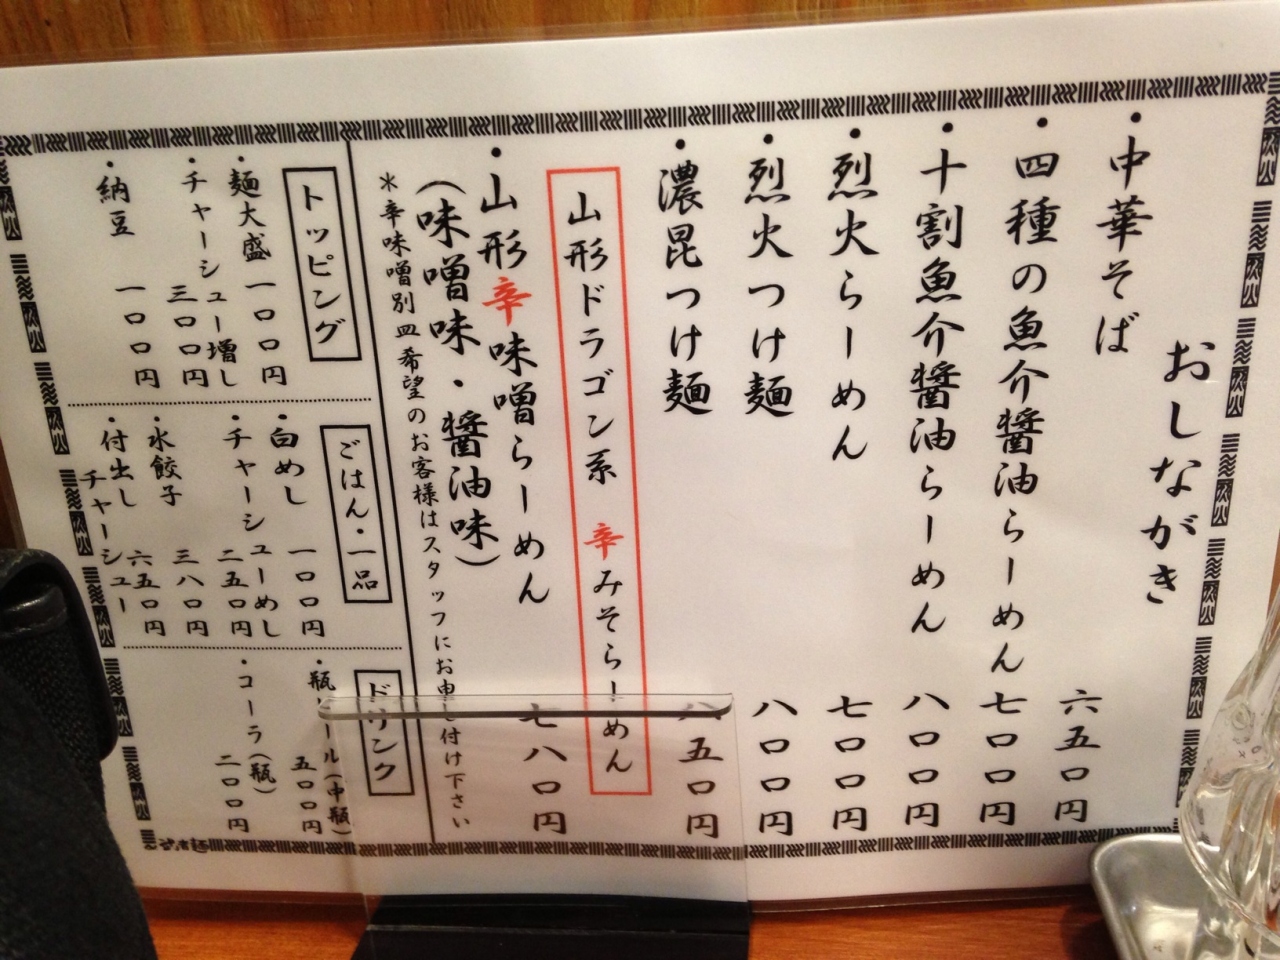 おしながき
・中華そば 六五〇円
・四種の魚介醤油らーめん 七〇〇円
・十割魚介醤油らーめん 八〇〇円
・烈火らーめん 七〇〇円
・烈火つけ麺 八〇〇円
・濃昆つけ麺 八五〇円
山形ドラゴン系 辛みそらーめん
・山形辛味噌らーめん 七八〇円
（味噌味・醤油味）
＊辛味噌別皿希望のお客様はスタッフにお申し付け下さい
トッピング
・麺大盛 一〇〇円
・チャーシュー増し 三〇〇円
・納豆 一〇〇円
ごはん・一品
・白めし 一〇〇円
・チャーシューめし 二五〇円
・水餃子 三八〇円
・付出しチャーシュー 六五〇円
ドリンク
・瓶ビール（中瓶） 五〇〇円
・コーラ（瓶） 二〇〇円